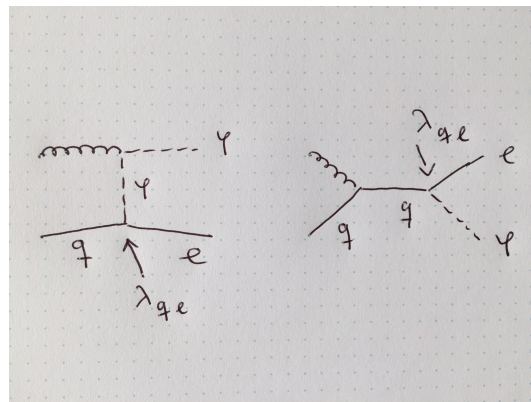 φ
φ
q e
λqe
λqe
e
q
q
φ